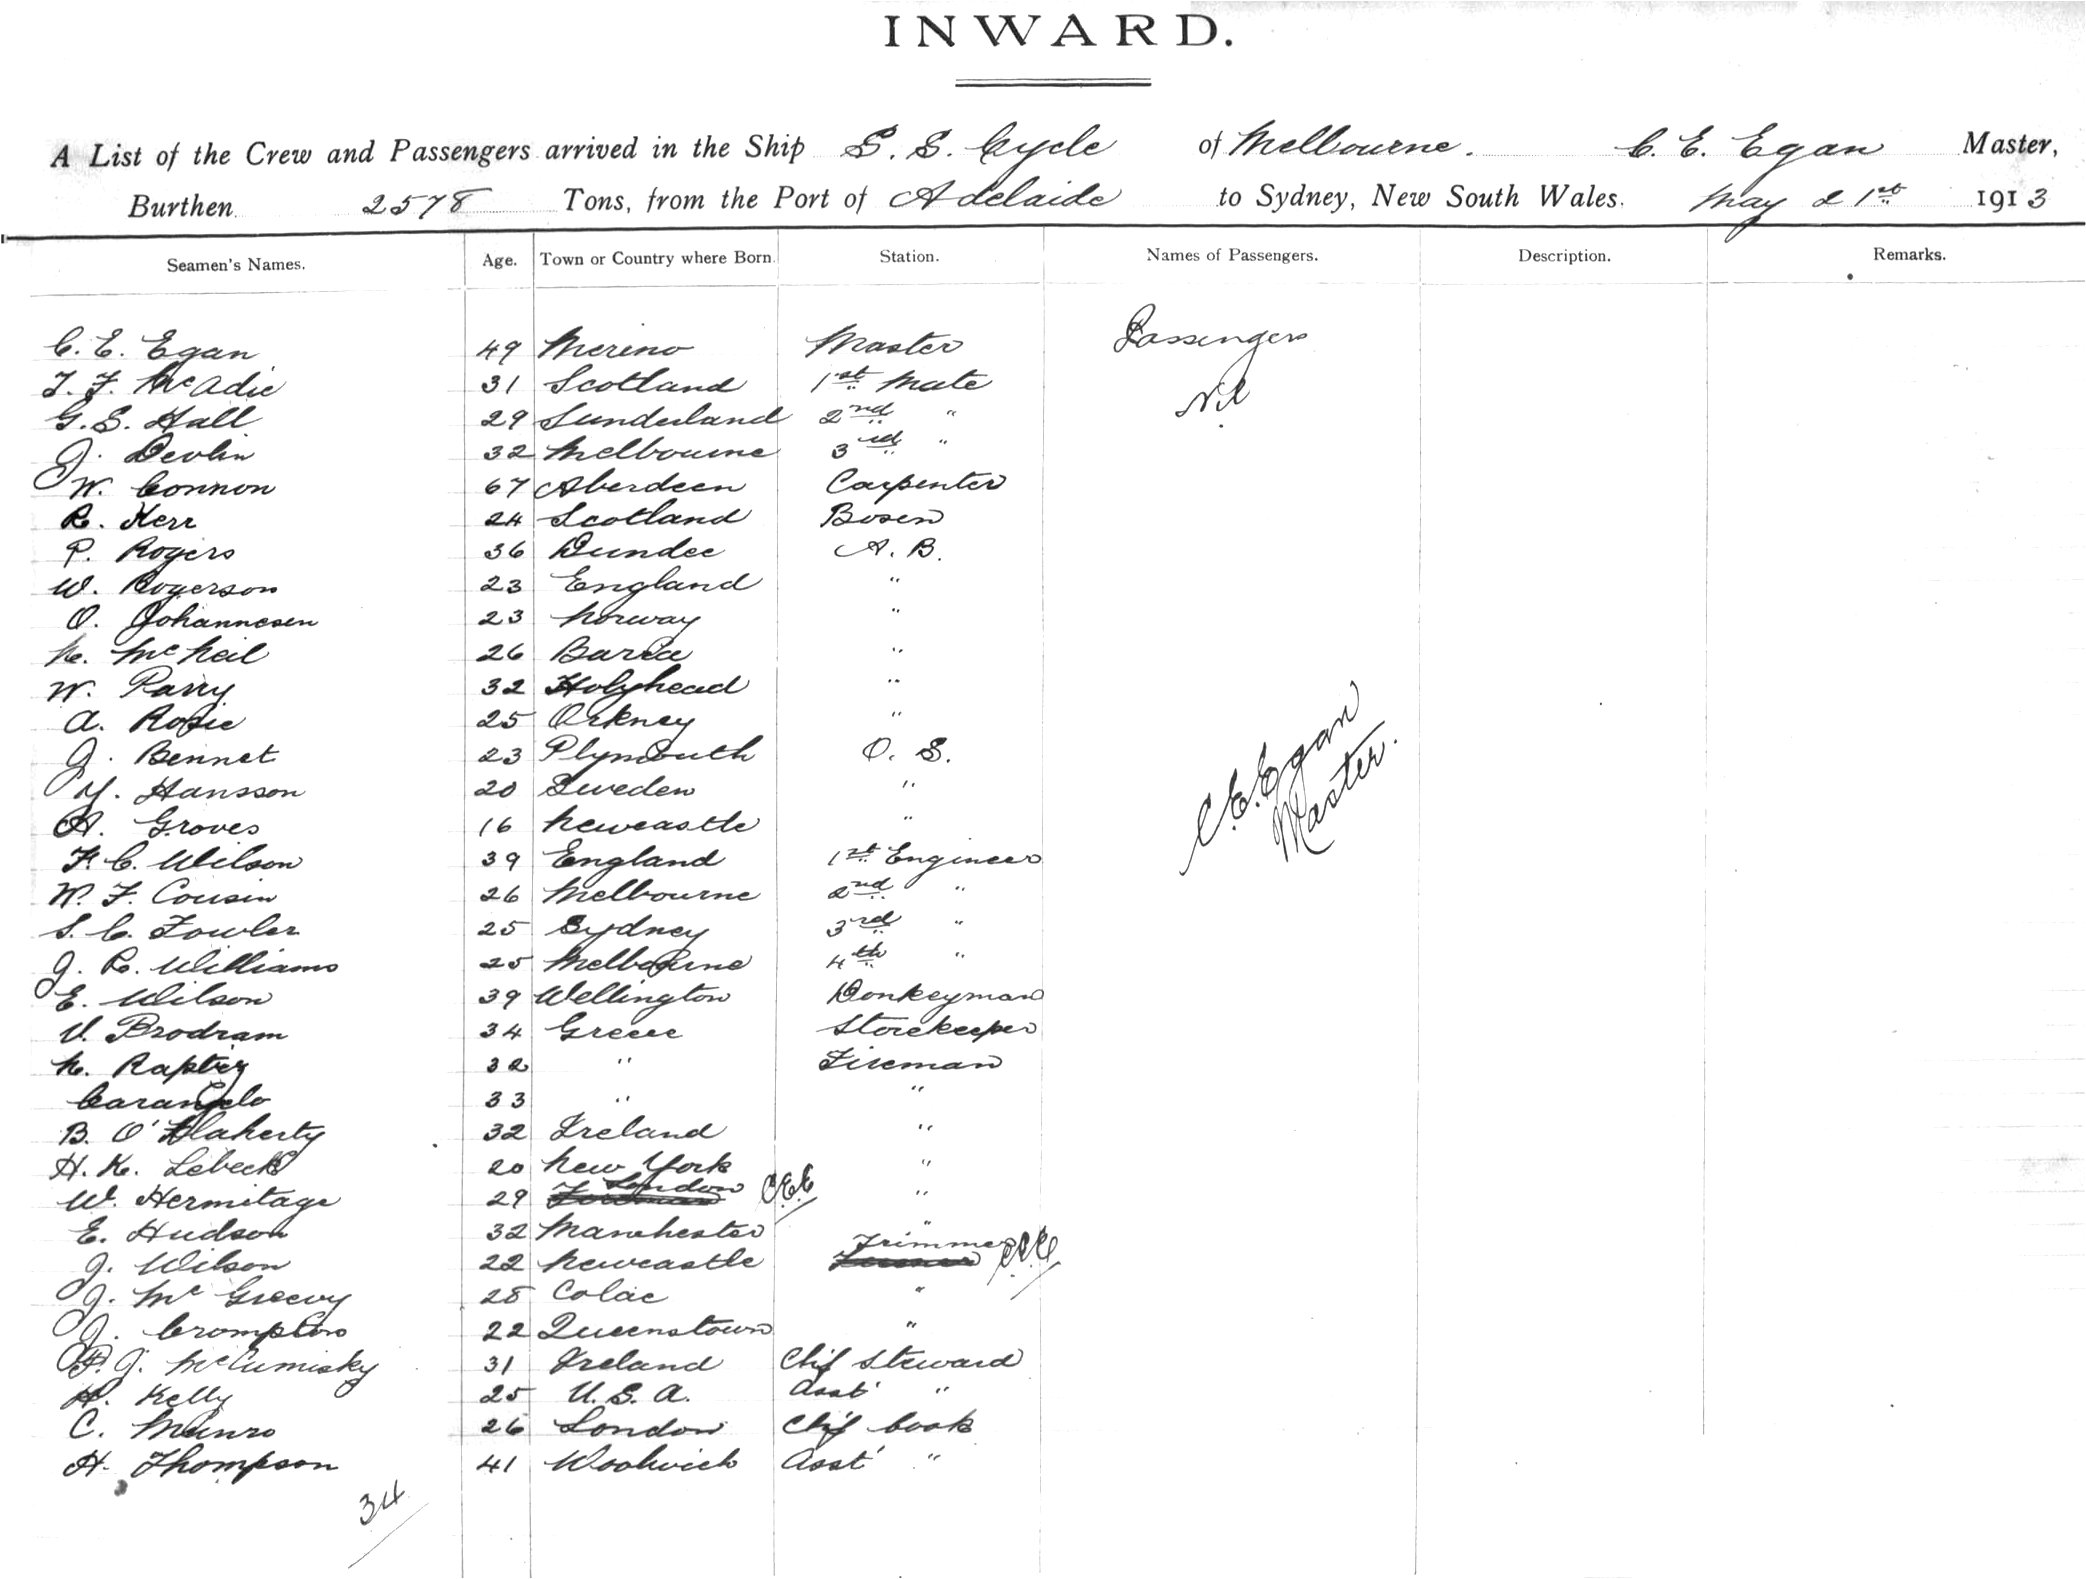 INWARD.
A List of the Crew and Passengers arrived in the Ship S. S. Cycle of Melbourne. C. E. Egan Master,
Burthen 2578 Tons, from the Port of Adelaide to Sydney, New South Wales. May 21st 1913
Seamen's Names. Age. Town or Country where Born. Station. Names of Passengers. Description. Remarks.
C. E. Egan 49 Merino Master Passengers
T. F. McAdie 31 Scotland 1st Mate
G. S. Hall 29 Sunderland 2nd " Nil
J. Devlin 32 Melbourne 3rd "
W. Connon 67 Aberdeen Carpenter
R. Kerr 24 Scotland Bosen
P. Rogers 36 Dundee A. B.
W. Rogerson 23 England "
O. Johannesen 23 Norway "
N. McNeil 26 Barra "
W. Parry 32 Holyhead "
A. Rosie 25 Orkney "
J. Bennet 23 Plymouth O. S.
Y. Hansson 20 Sweden "
A. Groves 16 Newcastle "
F. C. Wilson 39 England 1st Engineer
W. F. Cousin 26 Melbourne 2nd "
S. C. Fowler 25 Sydney 3rd "
J. R. Williams 25 Melbourne 4th "
E. Wilson 39 Wellington Donkeyman
V. Brodram 34 Greece Storekeeper
N. 32 " Fireman
Carangelo 33 " "
B. O'Flaherty 32 Ireland "
H. K. Lebeck 20 New York "
W. Hermitage 29 London C.E.E "
E. Hudson 32 Manchester "
J. Wilson 22 Newcastle Trimmer C.E.E
J. McGreevy 28 Colac "
J. Crompton 22 Queenstown "
P. J. McCumisky 31 Ireland Chf Steward
H. Kelly 25 U. S. A. Asst "
C. Munro 26 London Chf Cook
H. Thompson 41 Woolwich Asst "
34
C. E. Egan
Master.